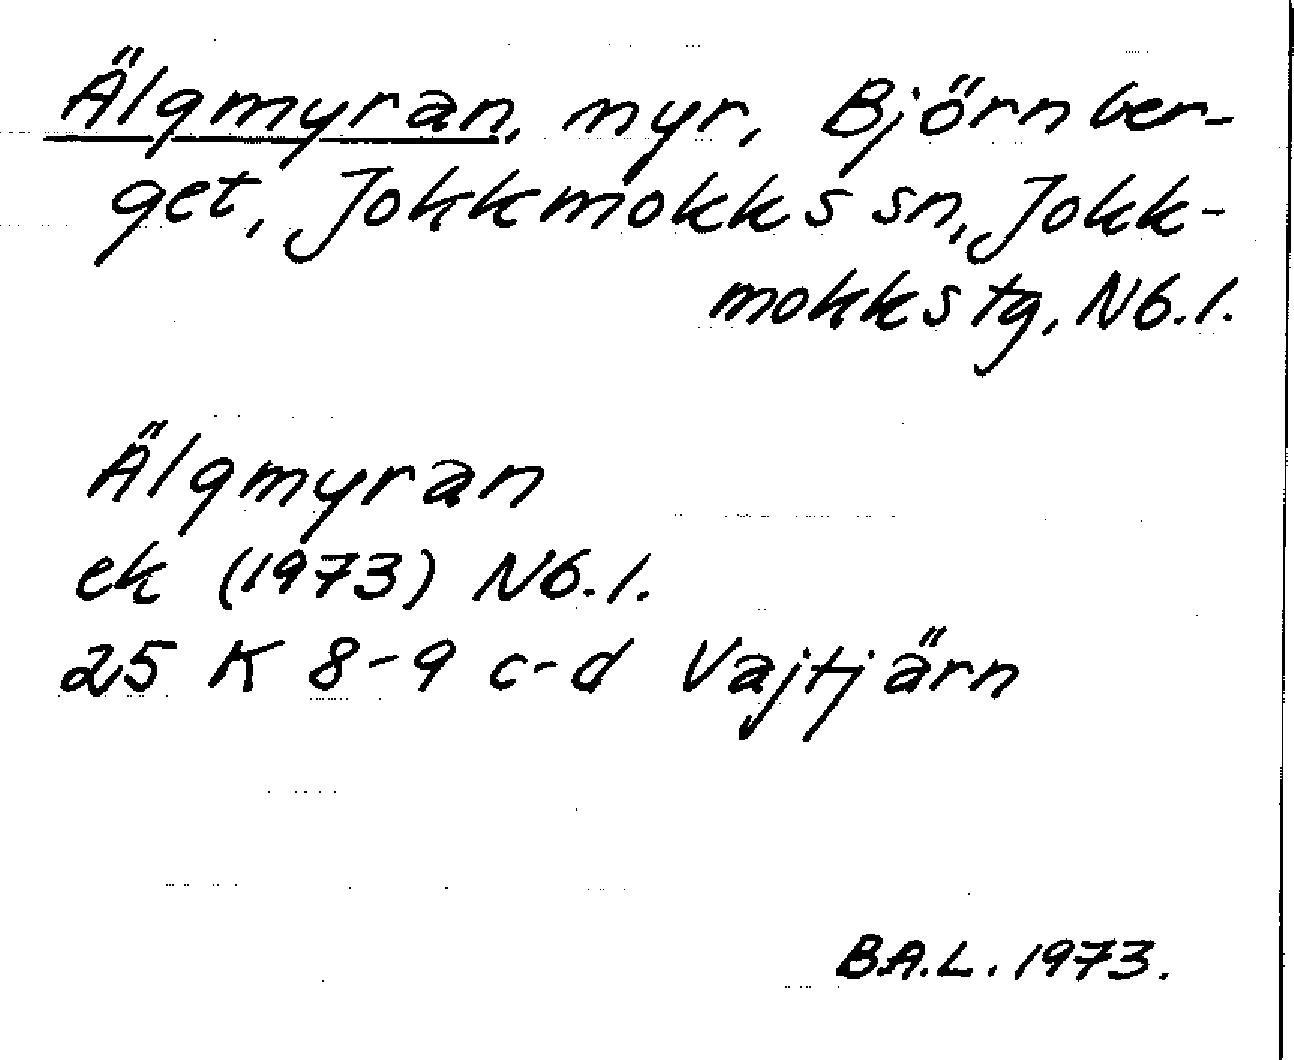 Älgmyran, myr, Björnber-
get, Jokkmokks sn, Jokk-
mokks tg, Nb. l.
Älgmyran
ek (1973) Nb. l.
25 K 8-9 c-d Vajtjärn
B.A.L. 1973.